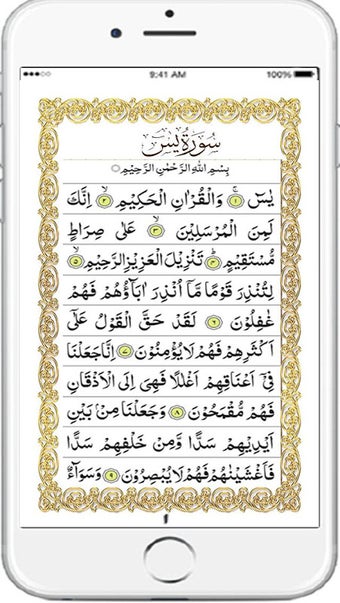 9:41 AM 100%
سُورَةُ يٰسٓ
بِسْمِ اللّٰهِ الرَّحْمٰنِ الرَّحِيْمِ ○
يٰسٓ ۚ ﴿۱﴾ وَالْقُرْاٰنِ الْحَكِيْمِ ۙ ﴿۲﴾ اِنَّكَ
لَمِنَ الْمُرْسَلِيْنَ ۙ ﴿۳﴾ عَلٰى صِرَاطٍ
مُّسْتَقِيْمٍ ؕ ﴿۴﴾ تَنْزِيْلَ الْعَزِيْزِ الرَّحِيْمِ ۙ ﴿۵﴾
لِتُنْذِرَ قَوْمًا مَّاۤ اُنْذِرَ اٰبَآؤُهُمْ فَهُمْ
غٰفِلُوْنَ ﴿۶﴾ لَقَدْ حَقَّ الْقَوْلُ عَلٰٓى
اَكْثَرِهِمْ فَهُمْ لَا يُؤْمِنُوْنَ ﴿۷﴾ اِنَّا جَعَلْنَا
فِيْۤ اَعْنَاقِهِمْ اَغْلٰلًا فَهِيَ اِلَى الْاَذْقَانِ
فَهُمْ مُّقْمَحُوْنَ ﴿۸﴾ وَجَعَلْنَا مِنْۢ بَيْنِ
اَيْدِيْهِمْ سَدًّا وَّمِنْ خَلْفِهِمْ سَدًّا
فَاَغْشَيْنٰهُمْ فَهُمْ لَا يُبْصِرُوْنَ ﴿۹﴾ وَسَوَآءٌ